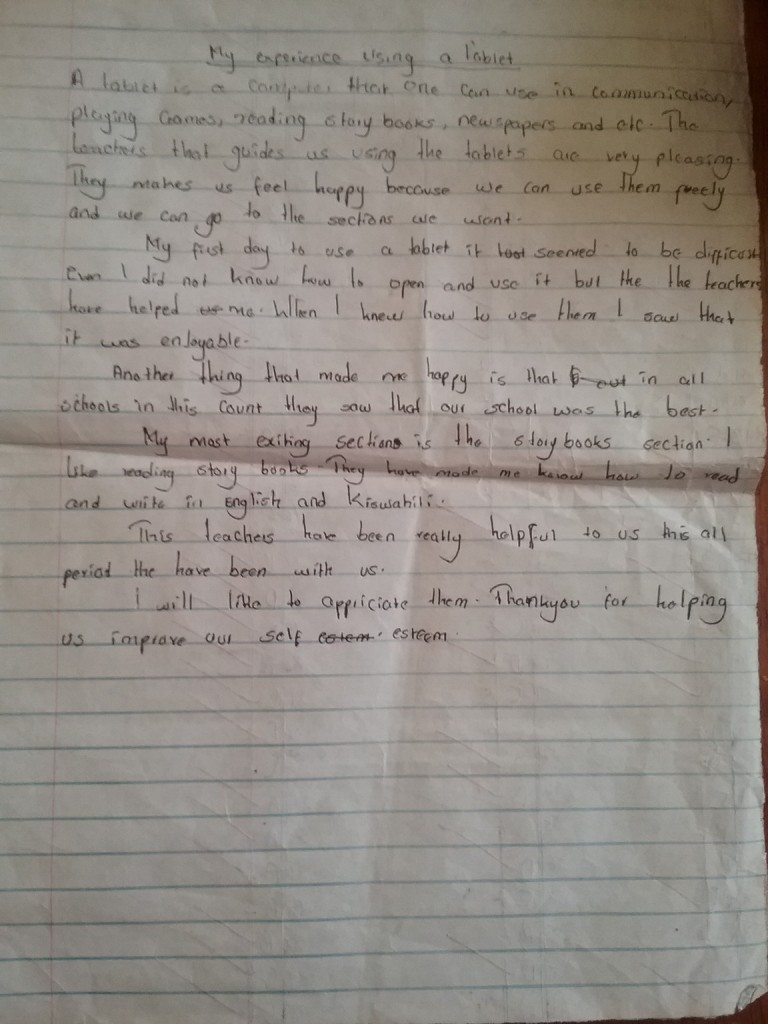 My experience Using a Tablet
A tablet is a computer that one can use in communication,
playing Games, reading story books, newspapers and etc. The
teachers that guides us using the tablets are very pleasing.
They makes us feel happy because we can use them freely
and we can go to the sections we want.
My first day to use a tablet it seemed to be difficult
even I did not know how to open and use it but the the teachers
have helped us me. When I knew how to use them I saw that
it was enjoyable.
Another thing that made me happy is that in all
schools in this Count they saw that our school was the best.
My most exiting sections is the storybooks section. I
like reading story books. They have made me know how to read
and write in English and Kiswahili.
This teachers have been really helpful to us this all
period the have been with us.
I will like to appriciate them. Thankyou for helping
us improve our self estem. esteem.